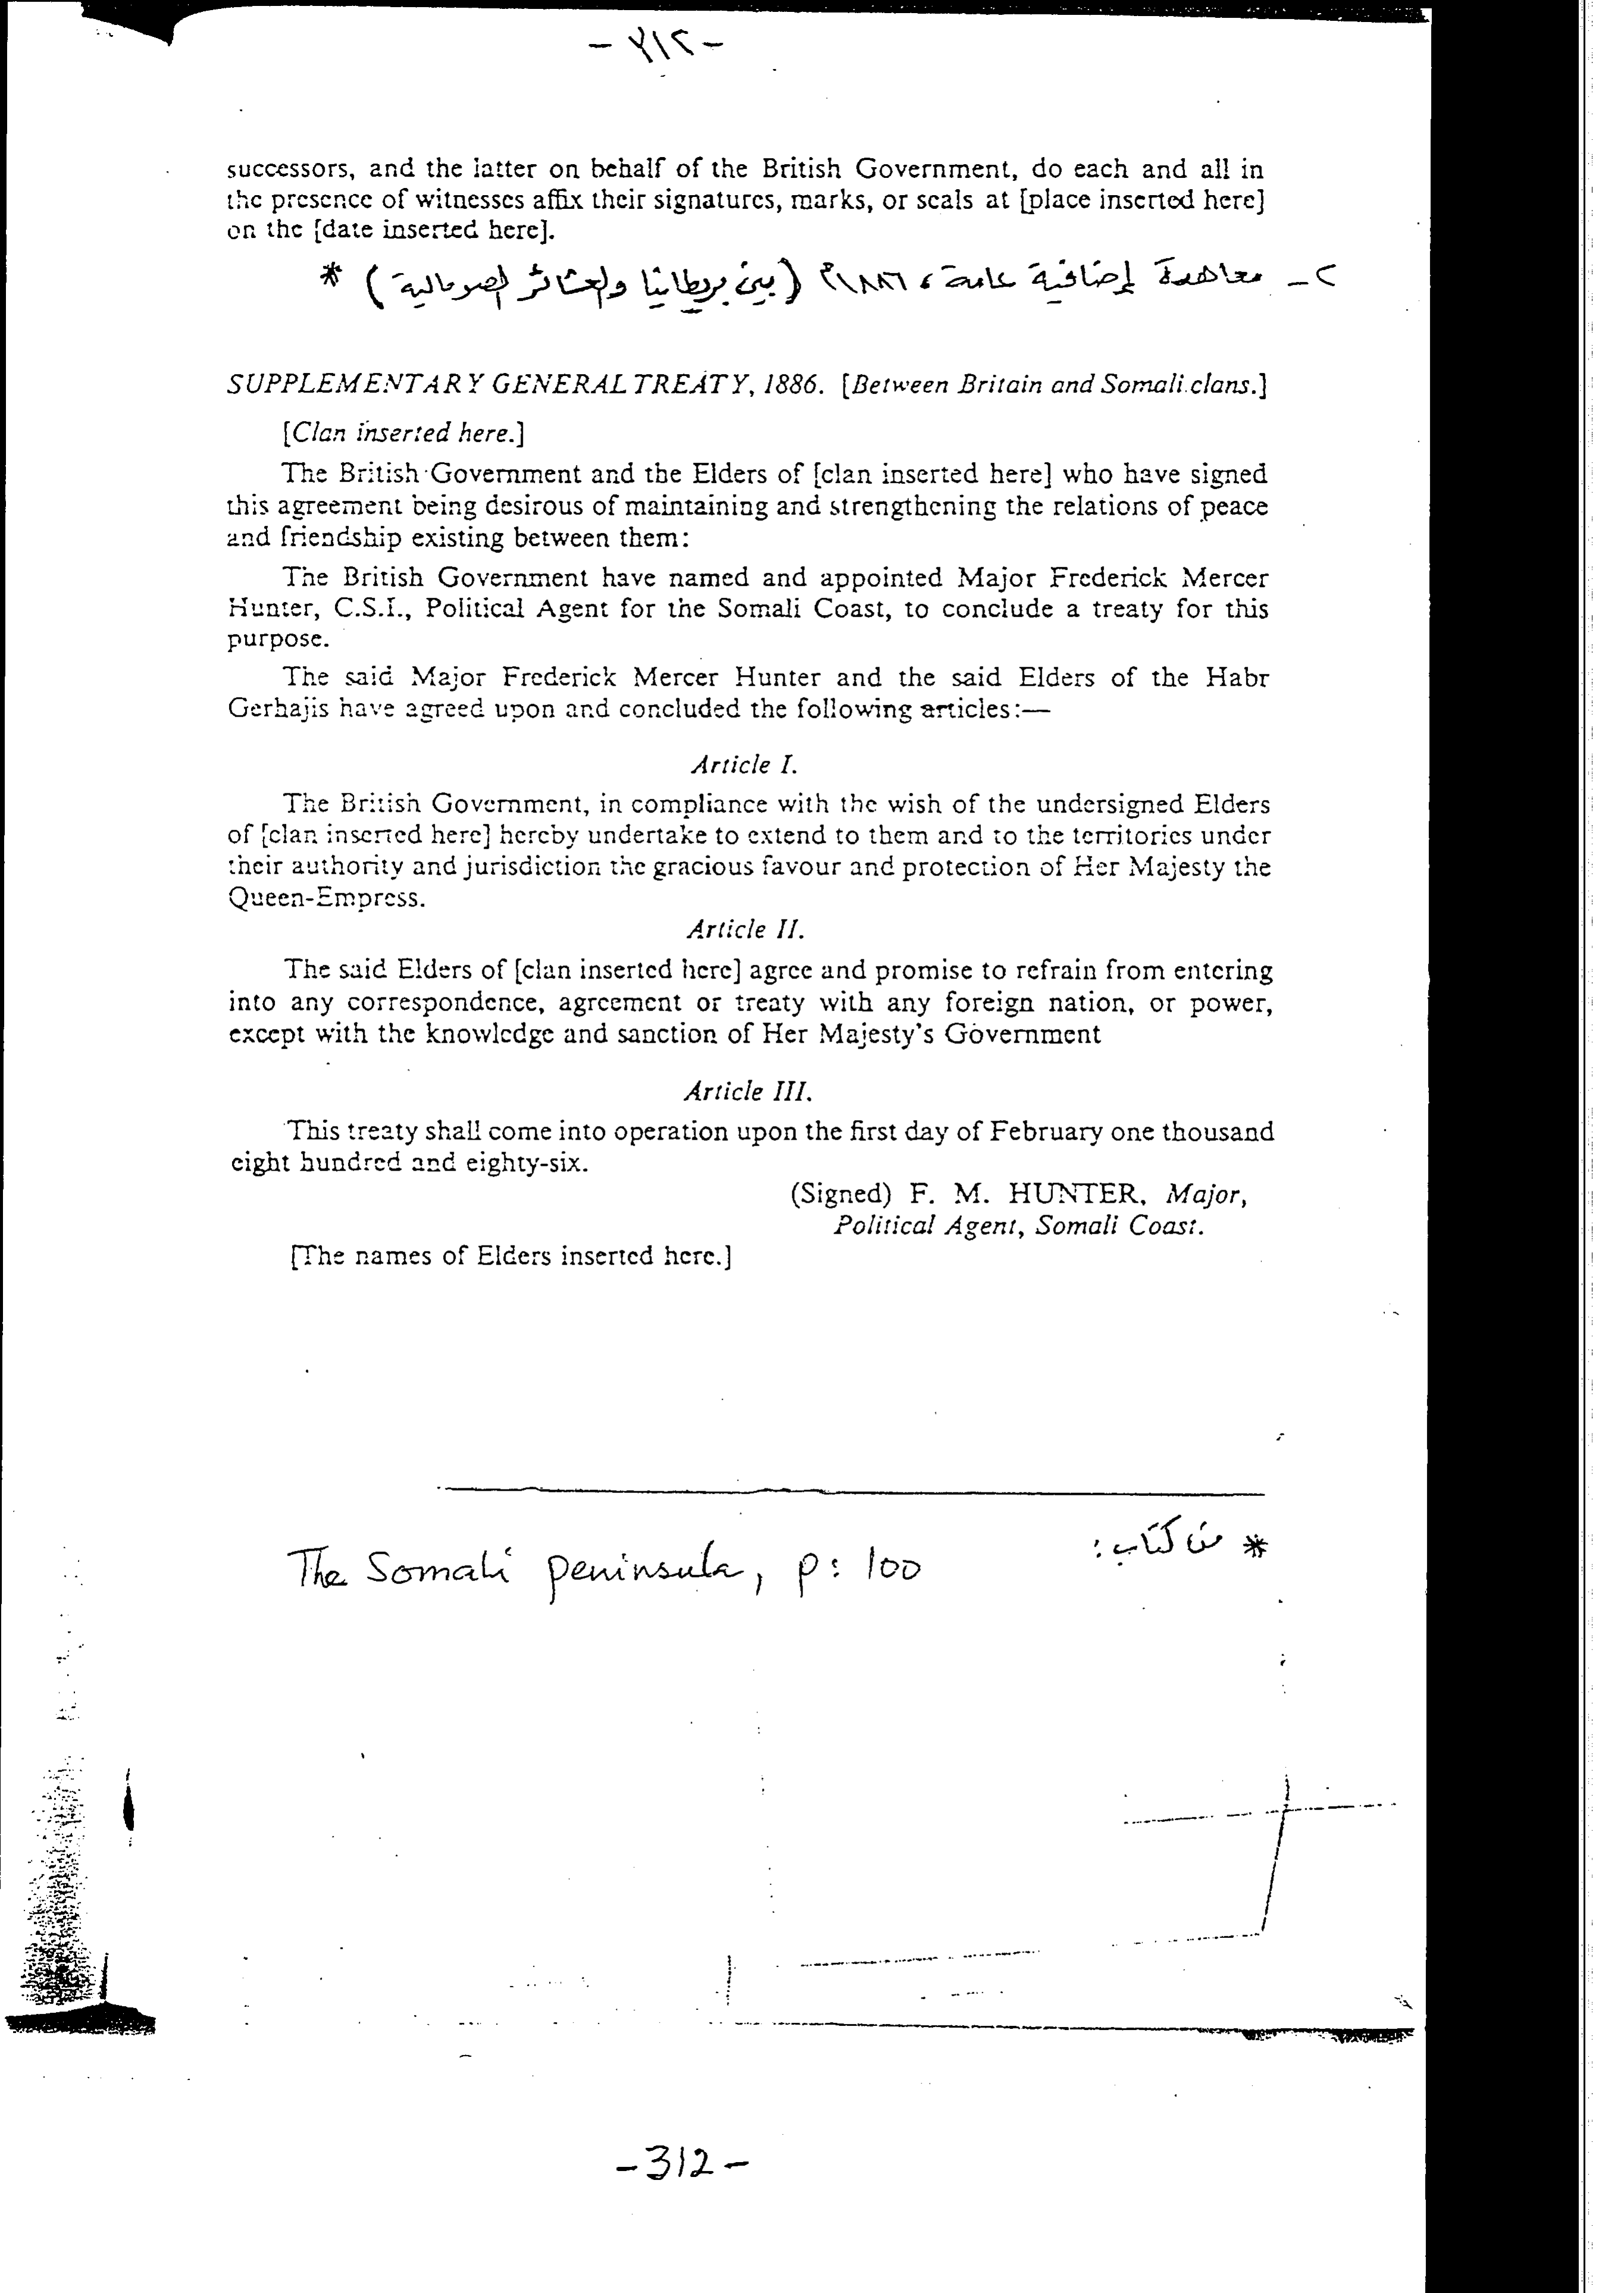 - ٣١٢ -
successors, and the latter on behalf of the British Government, do each and all in
the presence of witnesses affix their signatures, marks, or seals at [place inserted here]
on the [date inserted here].
٢ - معاهدة إضافية عامة، ١٨٨٦م (بين بريطانيا والعشائر الصومالية) *
SUPPLEMENTARY GENERAL TREATY, 1886. [Between Britain and Somali clans.]
[Clan inserted here.]
The British Government and the Elders of [clan inserted here] who have signed
this agreement being desirous of maintaining and strengthening the relations of peace
and friendship existing between them:
The British Government have named and appointed Major Frederick Mercer
Hunter, C.S.I., Political Agent for the Somali Coast, to conclude a treaty for this
purpose.
The said Major Frederick Mercer Hunter and the said Elders of the Habr
Gerhajis have agreed upon and concluded the following articles:—
Article I.
The British Government, in compliance with the wish of the undersigned Elders
of [clan inserted here] hereby undertake to extend to them and to the territories under
their authority and jurisdiction the gracious favour and protection of Her Majesty the
Queen-Empress.
Article II.
The said Elders of [clan inserted here] agree and promise to refrain from entering
into any correspondence, agreement or treaty with any foreign nation, or power,
except with the knowledge and sanction of Her Majesty's Government
Article III.
This treaty shall come into operation upon the first day of February one thousand
eight hundred and eighty-six.
(Signed) F. M. HUNTER, Major,
Political Agent, Somali Coast.
[The names of Elders inserted here.]
* من كتاب:
The Somali peninsula, p: 100
- 312 -